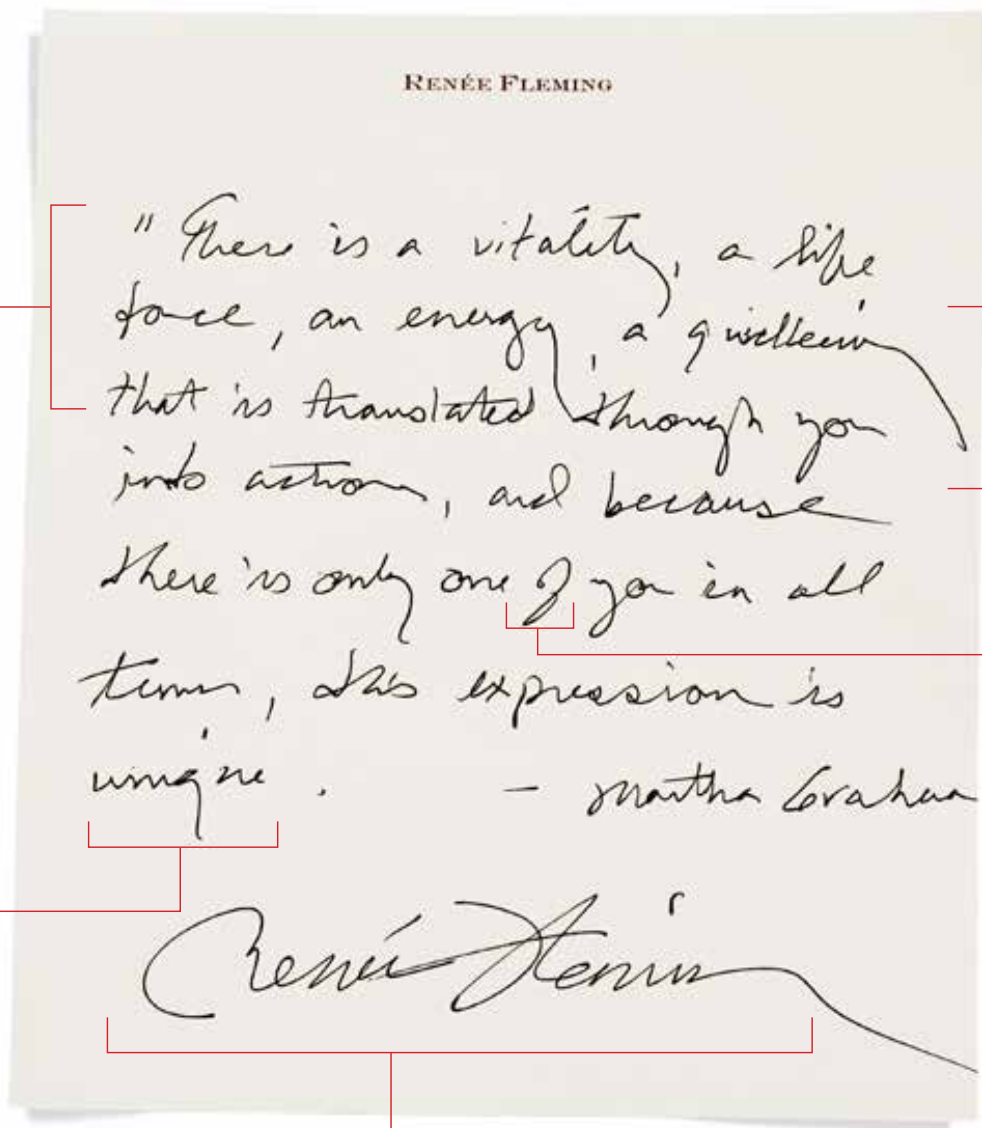 RENÉE FLEMING
" There is a vitality, a life
force, an energy, a quickening
that is translated through you
into action, and because
there is only one of you in all
time, this expression is
unique. - Martha Graham
Renée Fleming